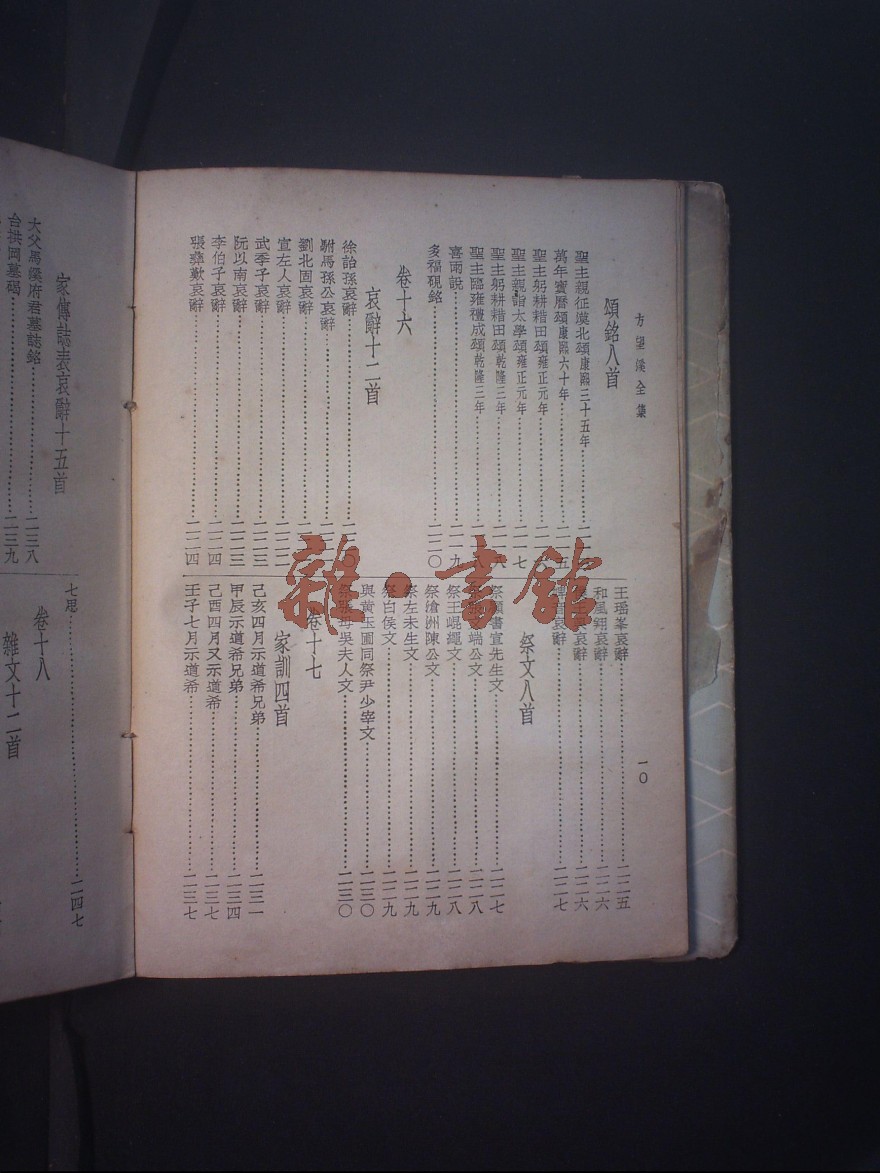 方望溪全集
一〇
頌銘八首
聖主親征漠北頌康熙三十五年
萬年寶曆頌康熙六十年
聖主躬耕耤田頌雍正元年
聖主親詣太學頌雍正元年……二一七
聖主躬耕耤田頌乾隆三年
聖主臨雍禮成頌乾隆三年
喜雨說……二一九
多福硯銘……二二〇
卷十六
哀辭十二首
徐詒孫哀辭
駙馬孫公哀辭
劉北固哀辭
宣左人哀辭……二二二
武季子哀辭……二二三
阮以南哀辭……二二三
李伯子哀辭……二二四
張彝歎哀辭……二二四
王瑤峯哀辭……二二五
和風翔哀辭……二二六
哀辭……二二六
哀辭……二二七
祭文八首
書宣先生文……二二七
端公文……二二八
祭王崐繩文……二二八
祭滄洲陳公文……二二九
祭左未生文……二二九
祭白侯文……二二九
與黃玉圃同祭尹少宰文……二三〇
祭張母吳夫人文……二三〇
卷十七
家訓四首
己亥四月示道希兄弟……二三一
甲辰示道希兄弟……二三四
己酉四月又示道希……二三七
壬子七月示道希……二三七
家傳誌表哀辭十五首
大父馬溪府君墓誌銘……二三八
台拱岡墓碣……二三九
七思……二四七
卷十八
雜文十二首
雜·書館